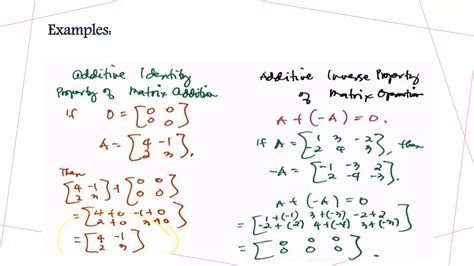 Examples:
Additive Identity
Property of Matrix Addition
If O = [0 0
0 0]
A = [4 -1
2 3],
Then
[4 -1
2 3] + [0 0
0 0]
= [4+0 -1+0
2+0 3+0]
= [4 -1
2 3]
Additive Inverse Property
of Matrix Operation
A + (-A) = 0.
If A = [1 3 -2
-2 4 3],
-A = [-1 -3 2
2 -4 -3]
A + (-A) = 0
= [1+(-1) 3+(-3) -2+2
-2+2 4+(-4) 3+(-3)]
= [0 0 0
0 0 0]